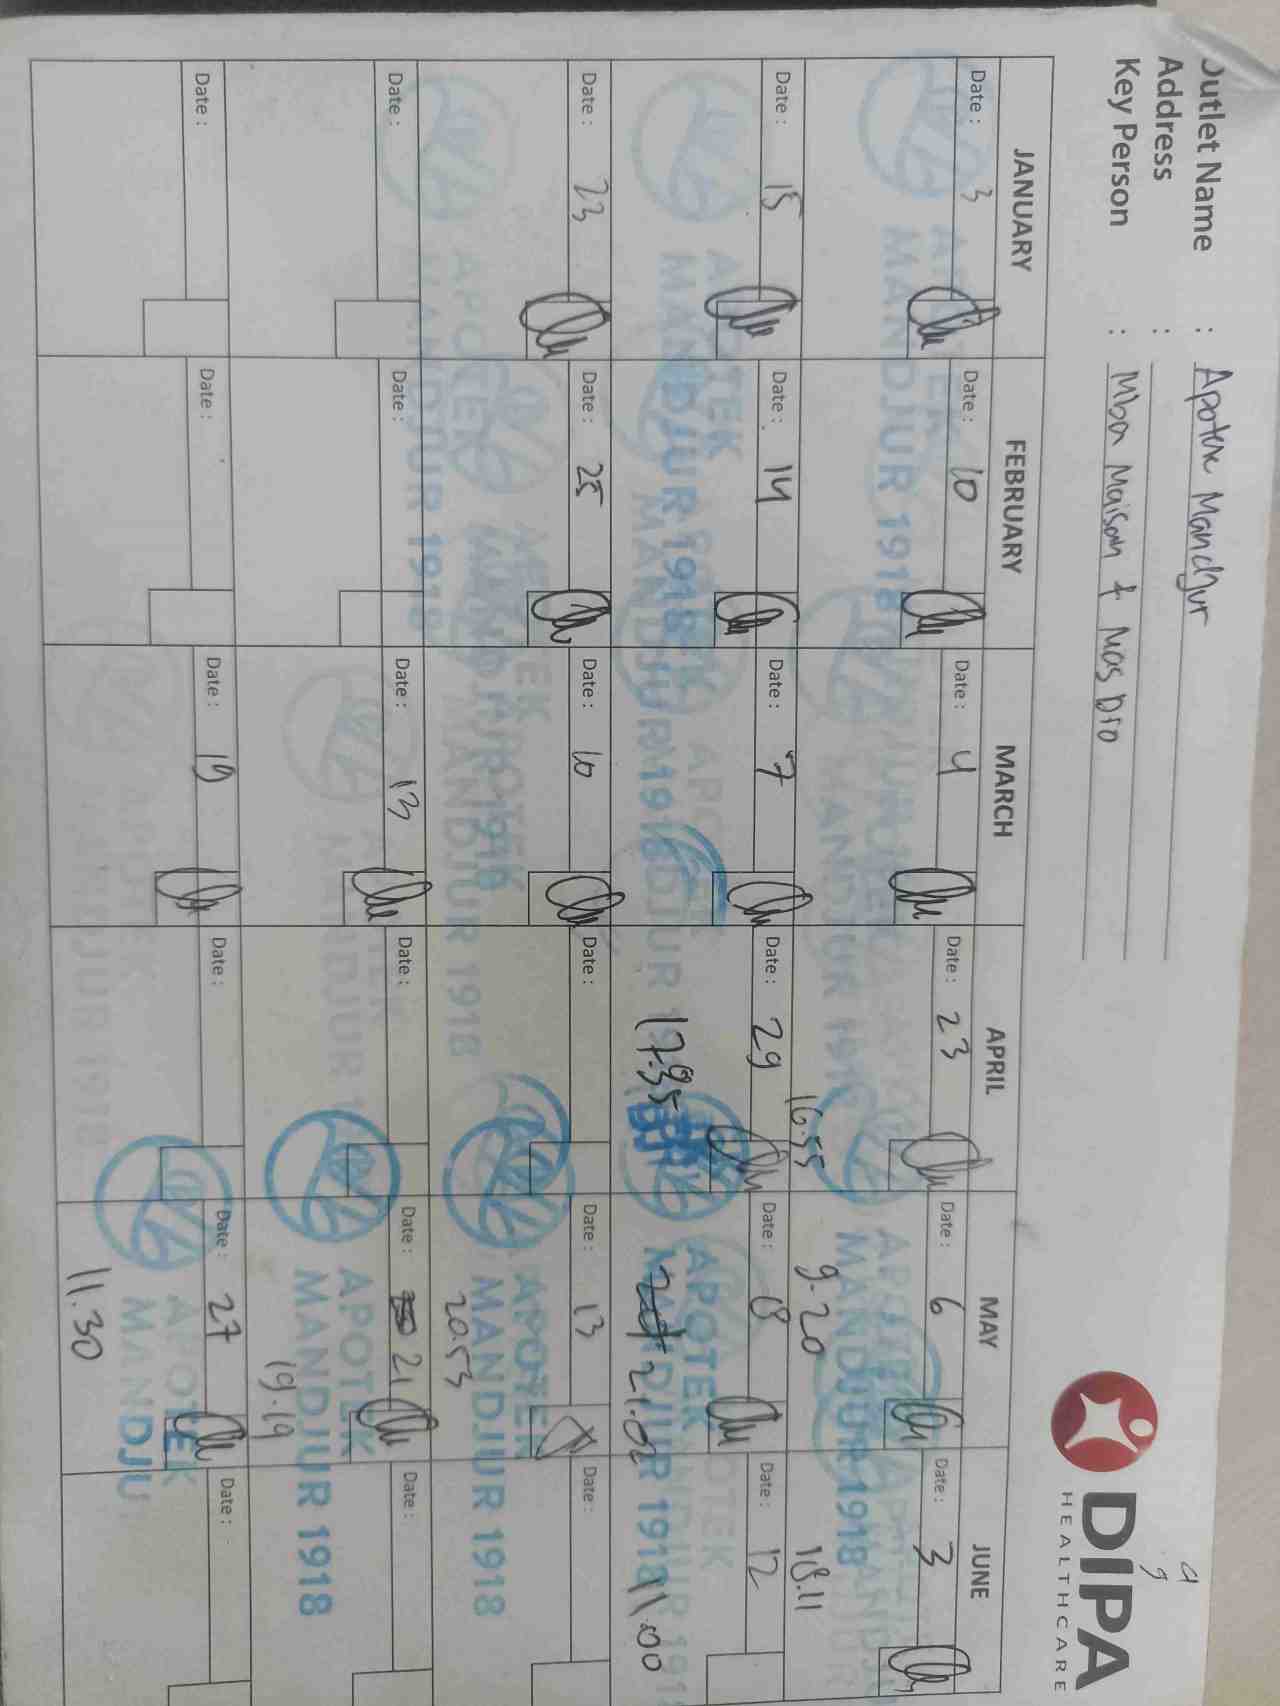 Outlet Name : Apotek Mandjur
Address :
Key Person : Mba Maisan & Mas Dio
DIPA
HEALTHCARE
JANUARY FEBRUARY MARCH APRIL MAY JUNE
Date : 3 Date : 10 Date : 4 Date : 23 Date : 6 Date : 3
16.55 9.20 18.11
APOTEK
MANDJUR 1918
Date : 15 Date : 14 Date : 7 Date : 29 Date : 8 Date : 12
17.35 21.02 11.00
APOTEK
MANDJUR 1918
Date : 23 Date : 25 Date : 10 Date : Date : 13 Date :
20.53
APOTEK
MANDJUR 1918
Date : Date : Date : 13 Date : Date : 21 Date :
19.19
APOTEK
MANDJUR 1918
Date : Date : Date : 19 Date : Date : 27 Date :
11.30
APOTEK
MANDJU